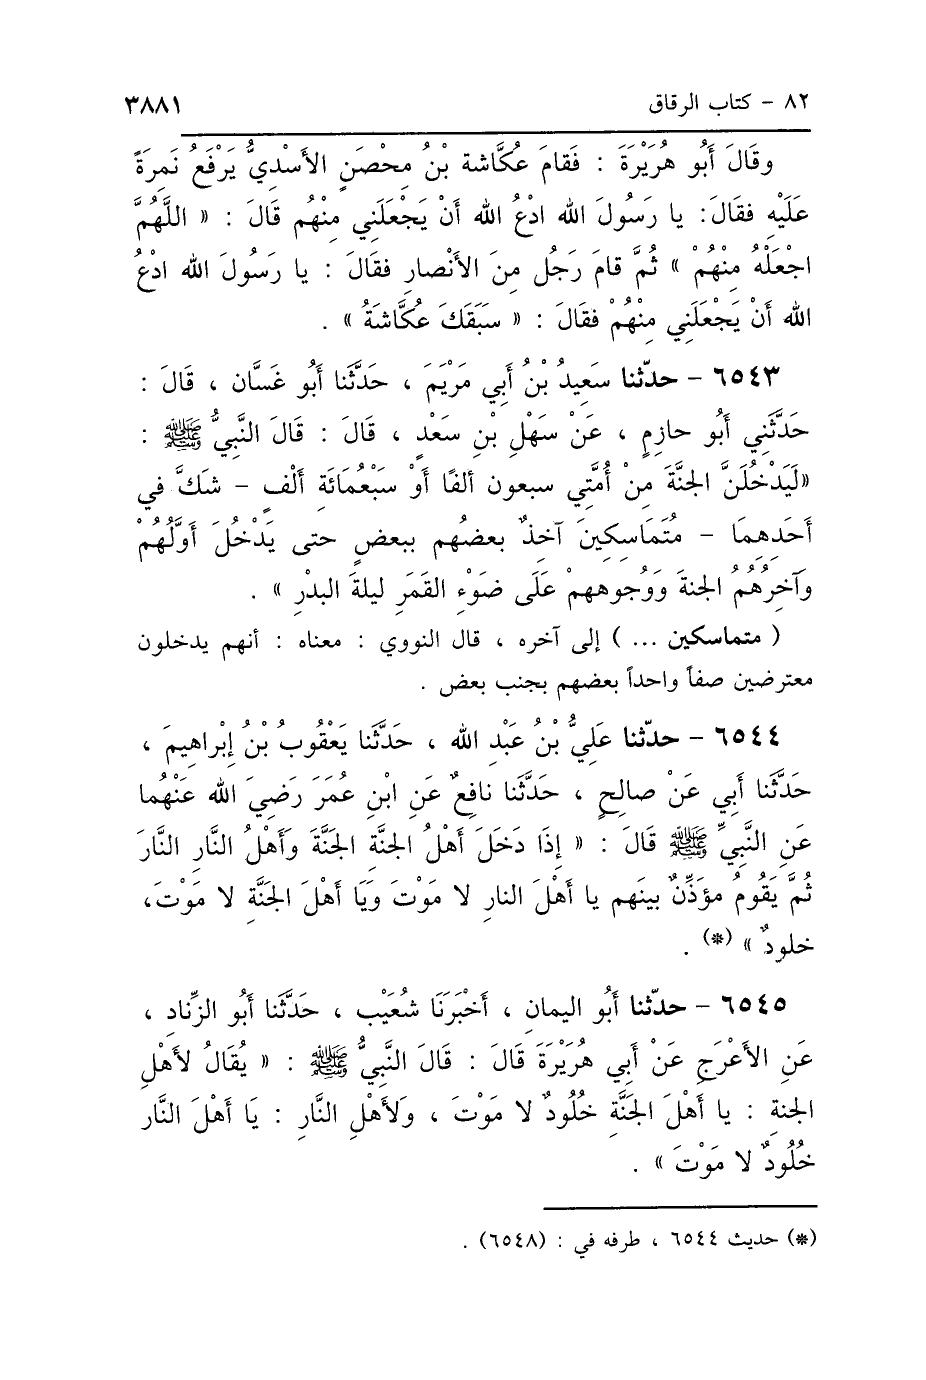 ٨٢ - كتاب الرقاق ٣٨٨١
وقَالَ أَبُو هُرَيْرَةَ : فَقامَ عُكَّاشة بْنُ مِحْصَنٍ الأَسْدِيُّ يَرْفَعُ نَمِرَةً
عَلَيْهِ فقَالَ: يا رَسُولَ الله ادْعُ الله أَنْ يَجْعَلَنِي مِنْهُم قَالَ : « اللَّهُمَّ
اجْعَلْهُ مِنْهُمْ » ثُمَّ قامَ رَجُل مِنَ الأَنْصارِ فقَالَ : يا رَسُولَ الله ادْعُ
الله أَنْ يَجْعَلَنِي مِنْهُمْ فقَالَ : « سَبَقَكَ عُكَّاشَةُ » .
٦٥٤٣ - حدّثنا سَعِيدُ بْنُ أَبِي مَرْيَمَ ، حَدَّثَنا أَبُو غَسَّان ، قَالَ :
حَدَّثَنِي أَبُو حازِمٍ ، عَنْ سَهْلِ بْنِ سَعْدٍ ، قَالَ : قَالَ النَّبِيُّ ﷺ :
«لَيَدْخُلَنَّ الجنَّةَ مِنْ أُمَّتِي سبعون ألفًا أَوْ سَبْعُمَائَةِ أَلْفٍ - شَكَّ في
أَحَدِهِمَا - مُتَمَاسكِينَ آخِذٌ بعضُهم ببعضٍ حتى يَدْخُلَ أَوَّلُهُمْ
وَآخِرُهُمُ الجنةَ وَوُجوههمْ عَلَى ضَوْءِ القَمَرِ ليلةَ البدْرِ » .
( متماسكين ... ) إلى آخره ، قال النووي : معناه : أنهم يدخلون
معترضين صفاً واحداً بعضهم بجنب بعض .
٦٥٤٤ - حدّثنا عَلِيُّ بْنُ عَبْدِ الله ، حَدَّثَنا يَعْقُوبُ بْنُ إِبْراهِيمَ ،
حَدَّثَنا أَبِي عَنْ صالِحٍ ، حَدَّثَنا نافِعٌ عَنِ ابْنِ عُمَرَ رَضِيَ الله عَنْهُما
عَنِ النَّبِيِّ ﷺ قَالَ : « إِذَا دَخَلَ أَهْلُ الجَنَّةِ الجَنَّةَ وَأَهْلُ النَّارِ النَّارَ
ثُمَّ يَقُومُ مؤَذِّنٌ بينَهم يا أَهْلَ النارِ لا مَوْتَ وَيَا أَهْلَ الجَنَّةِ لا مَوْتَ،
خلودٌ » (*) .
٦٥٤٥ - حدّثنا أَبُو اليمان ، أَخْبَرَنَا شُعَيْب ، حَدَّثَنا أَبُو الزِّناد ،
عَنِ الأَعْرَجِ عَنْ أَبِي هُرَيْرَةَ قَالَ : قَالَ النَّبِيُّ ﷺ : « يُقَالُ لأَهْلِ
الجنة : يا أَهْلَ الجَنَّةِ خُلُودٌ لا مَوْتَ ، وَلأَهْلِ النَّارِ : يَا أَهْلَ النَّار
خُلُودٌ لا مَوْتَ » .
(*) حديث ٦٥٤٤ ، طرفه في : (٦٥٤٨) .